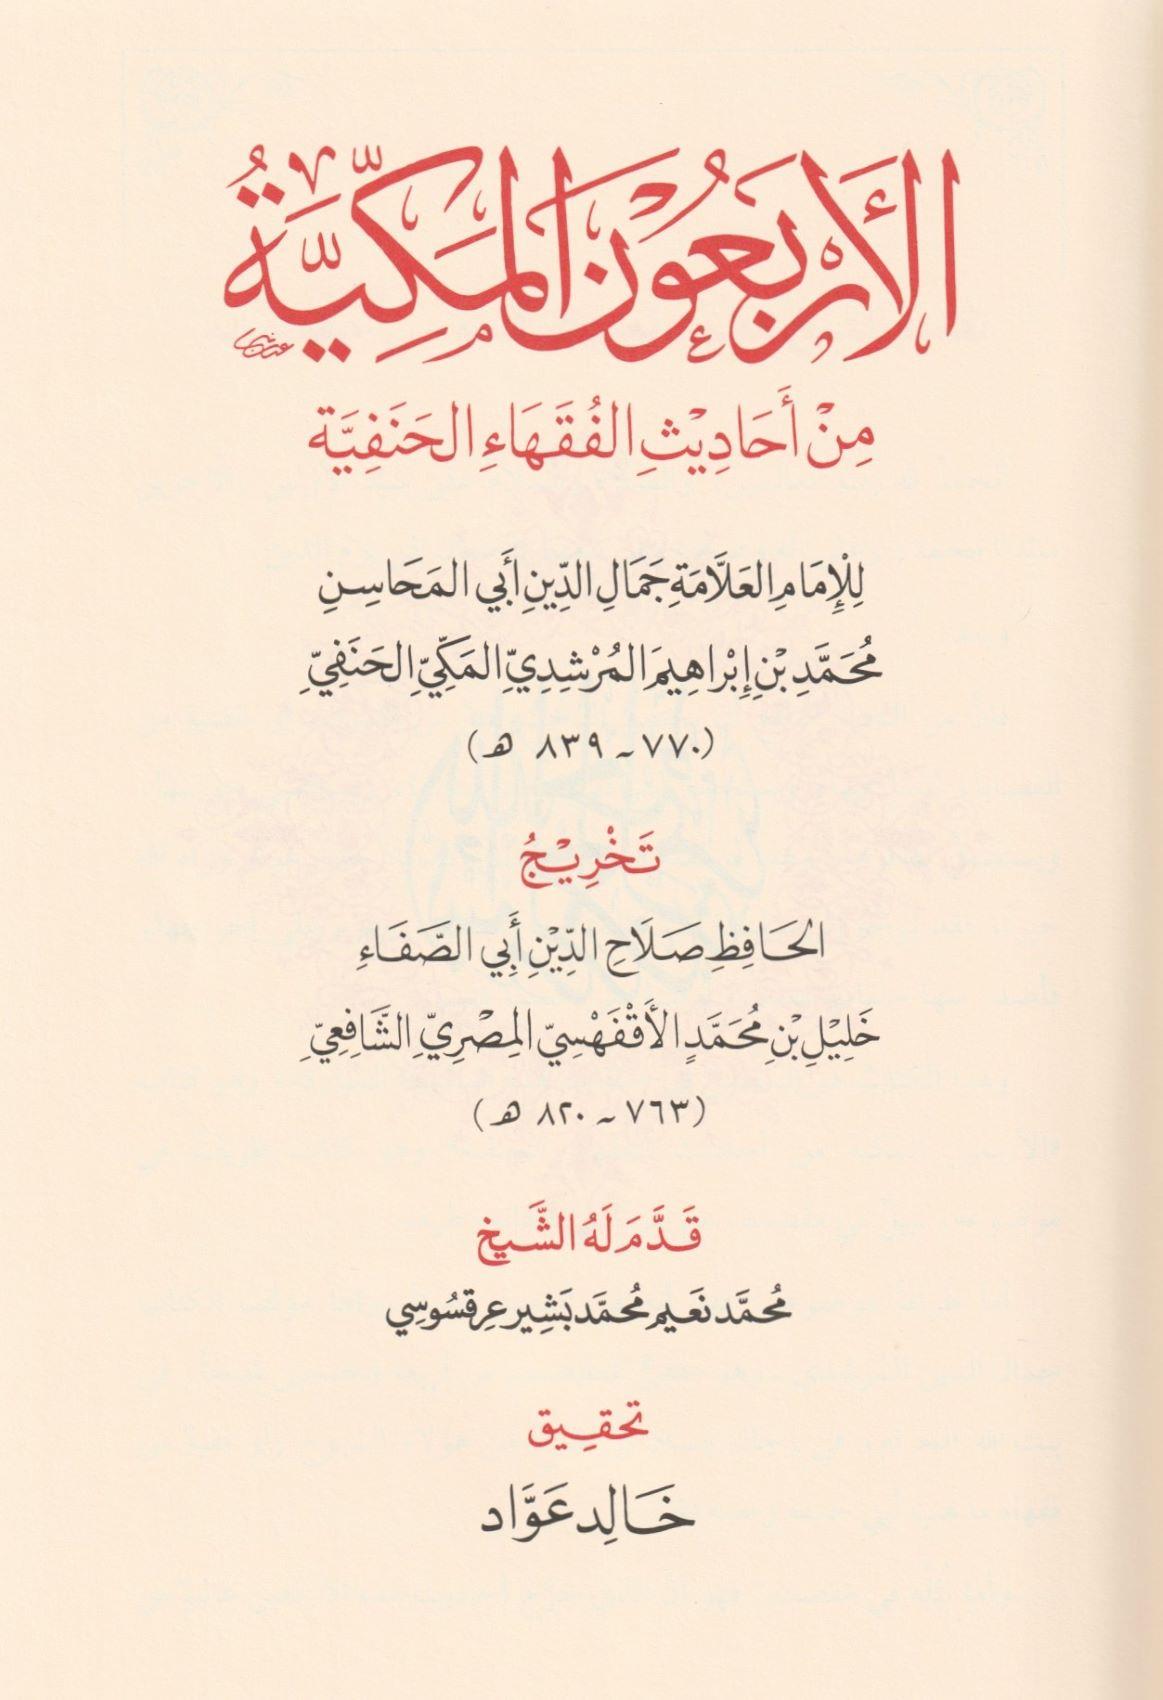 الأَرْبَعُونَ المَكِّيَّةُ
مِنْ أَحَادِيْثِ الفُقَهَاءِ الحَنَفِيَّة
لِلْإِمَامِ العَلَّامَةِ جَمَالِ الدِّينِ أَبي المَحَاسِنِ
مُحَمَّدِ بْنِ إِبْراهِيمَ المُرْشِدِيِّ المَكِّيِّ الحَنَفِيِّ
(٧٧٠ - ٨٣٩ هـ)
تَخْرِيْجُ
الحَافِظِ صَلَاحِ الدِّيْنِ أَبِي الصَّفَاءِ
خَلِيْلِ بْنِ مُحَمَّدٍ الأَقْفَهْسِيِّ المِصْرِيِّ الشَّافِعِيِّ
(٧٦٣ - ٨٢٠ هـ)
قَدَّمَ لَهُ الشَّيخ
مُحمَّد نَعَيم مُحمَّد بَشِير عِرقسُوسِي
تحقِيق
خَالِد عَوَّاد